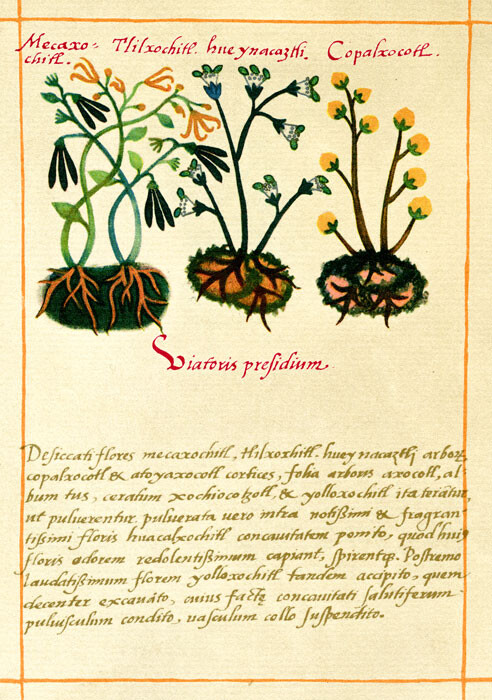 Mecaxo= Tlilxochitl. hueynacaztli. Copalxocotl.
chitl.
Viatoris presidium.
Desiccati flores mecaxochitl, tlilxochitl. hueynacaztli arborꝫ
copalxocotl & atoyaxocotl cortices, folia arboris axocotl, al-
bum tus, ceratum xochiocotzotl, & yolloxochitl ita terātur,
ut pulverentur. pulverata vero intra notißimi & fragran-
tißimi floris huacalxochitl concavitatem ponito, quod huiꝰ
floris odorem redolentißimum capiant, spirentqꝫ. Postremo
laudatißimum florem yolloxochitl tandem accipito, quem
decenter excavato, cuius factę concavitati salutiferum
pulvisculum condito, vasculum collo suspendito.